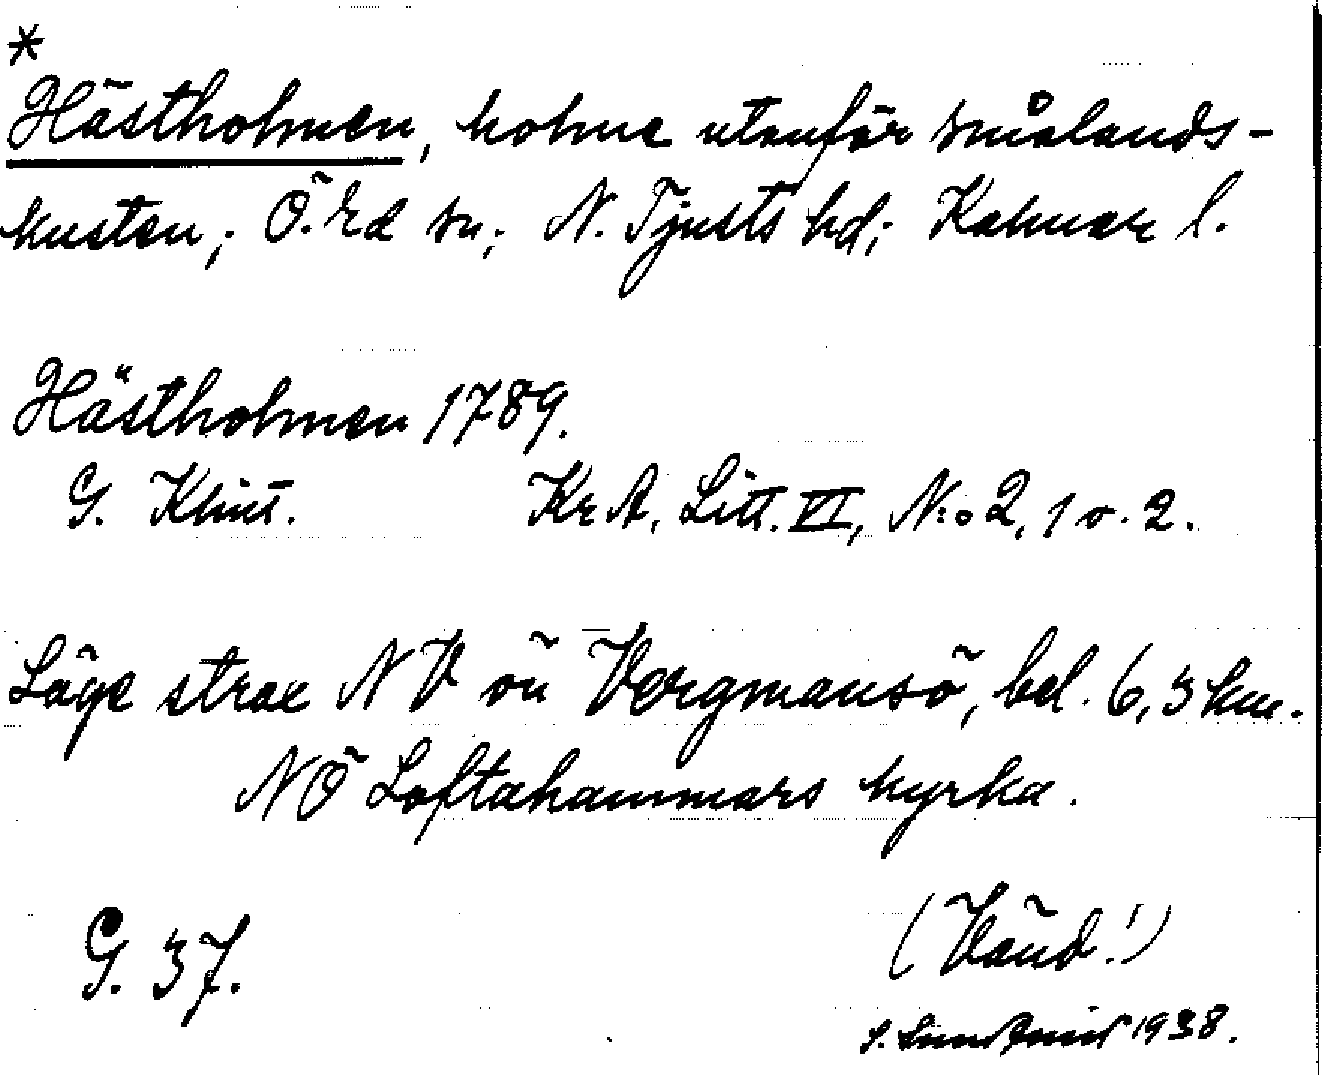 *
Hästholmen, holme utanför smålands-
kusten; Ö. Ed sn; N. Tjusts hd; Kalmar l.
Hästholmen 1789.
G. Klint. Kr A, Litt. VI, N:o 2, 1 o. 2.
Läge strax NV ön Vergmansö, bel. 6,5 km.
NÖ Loftahammars kyrka.
G. 37.
(Vänd!)
S. 1938.